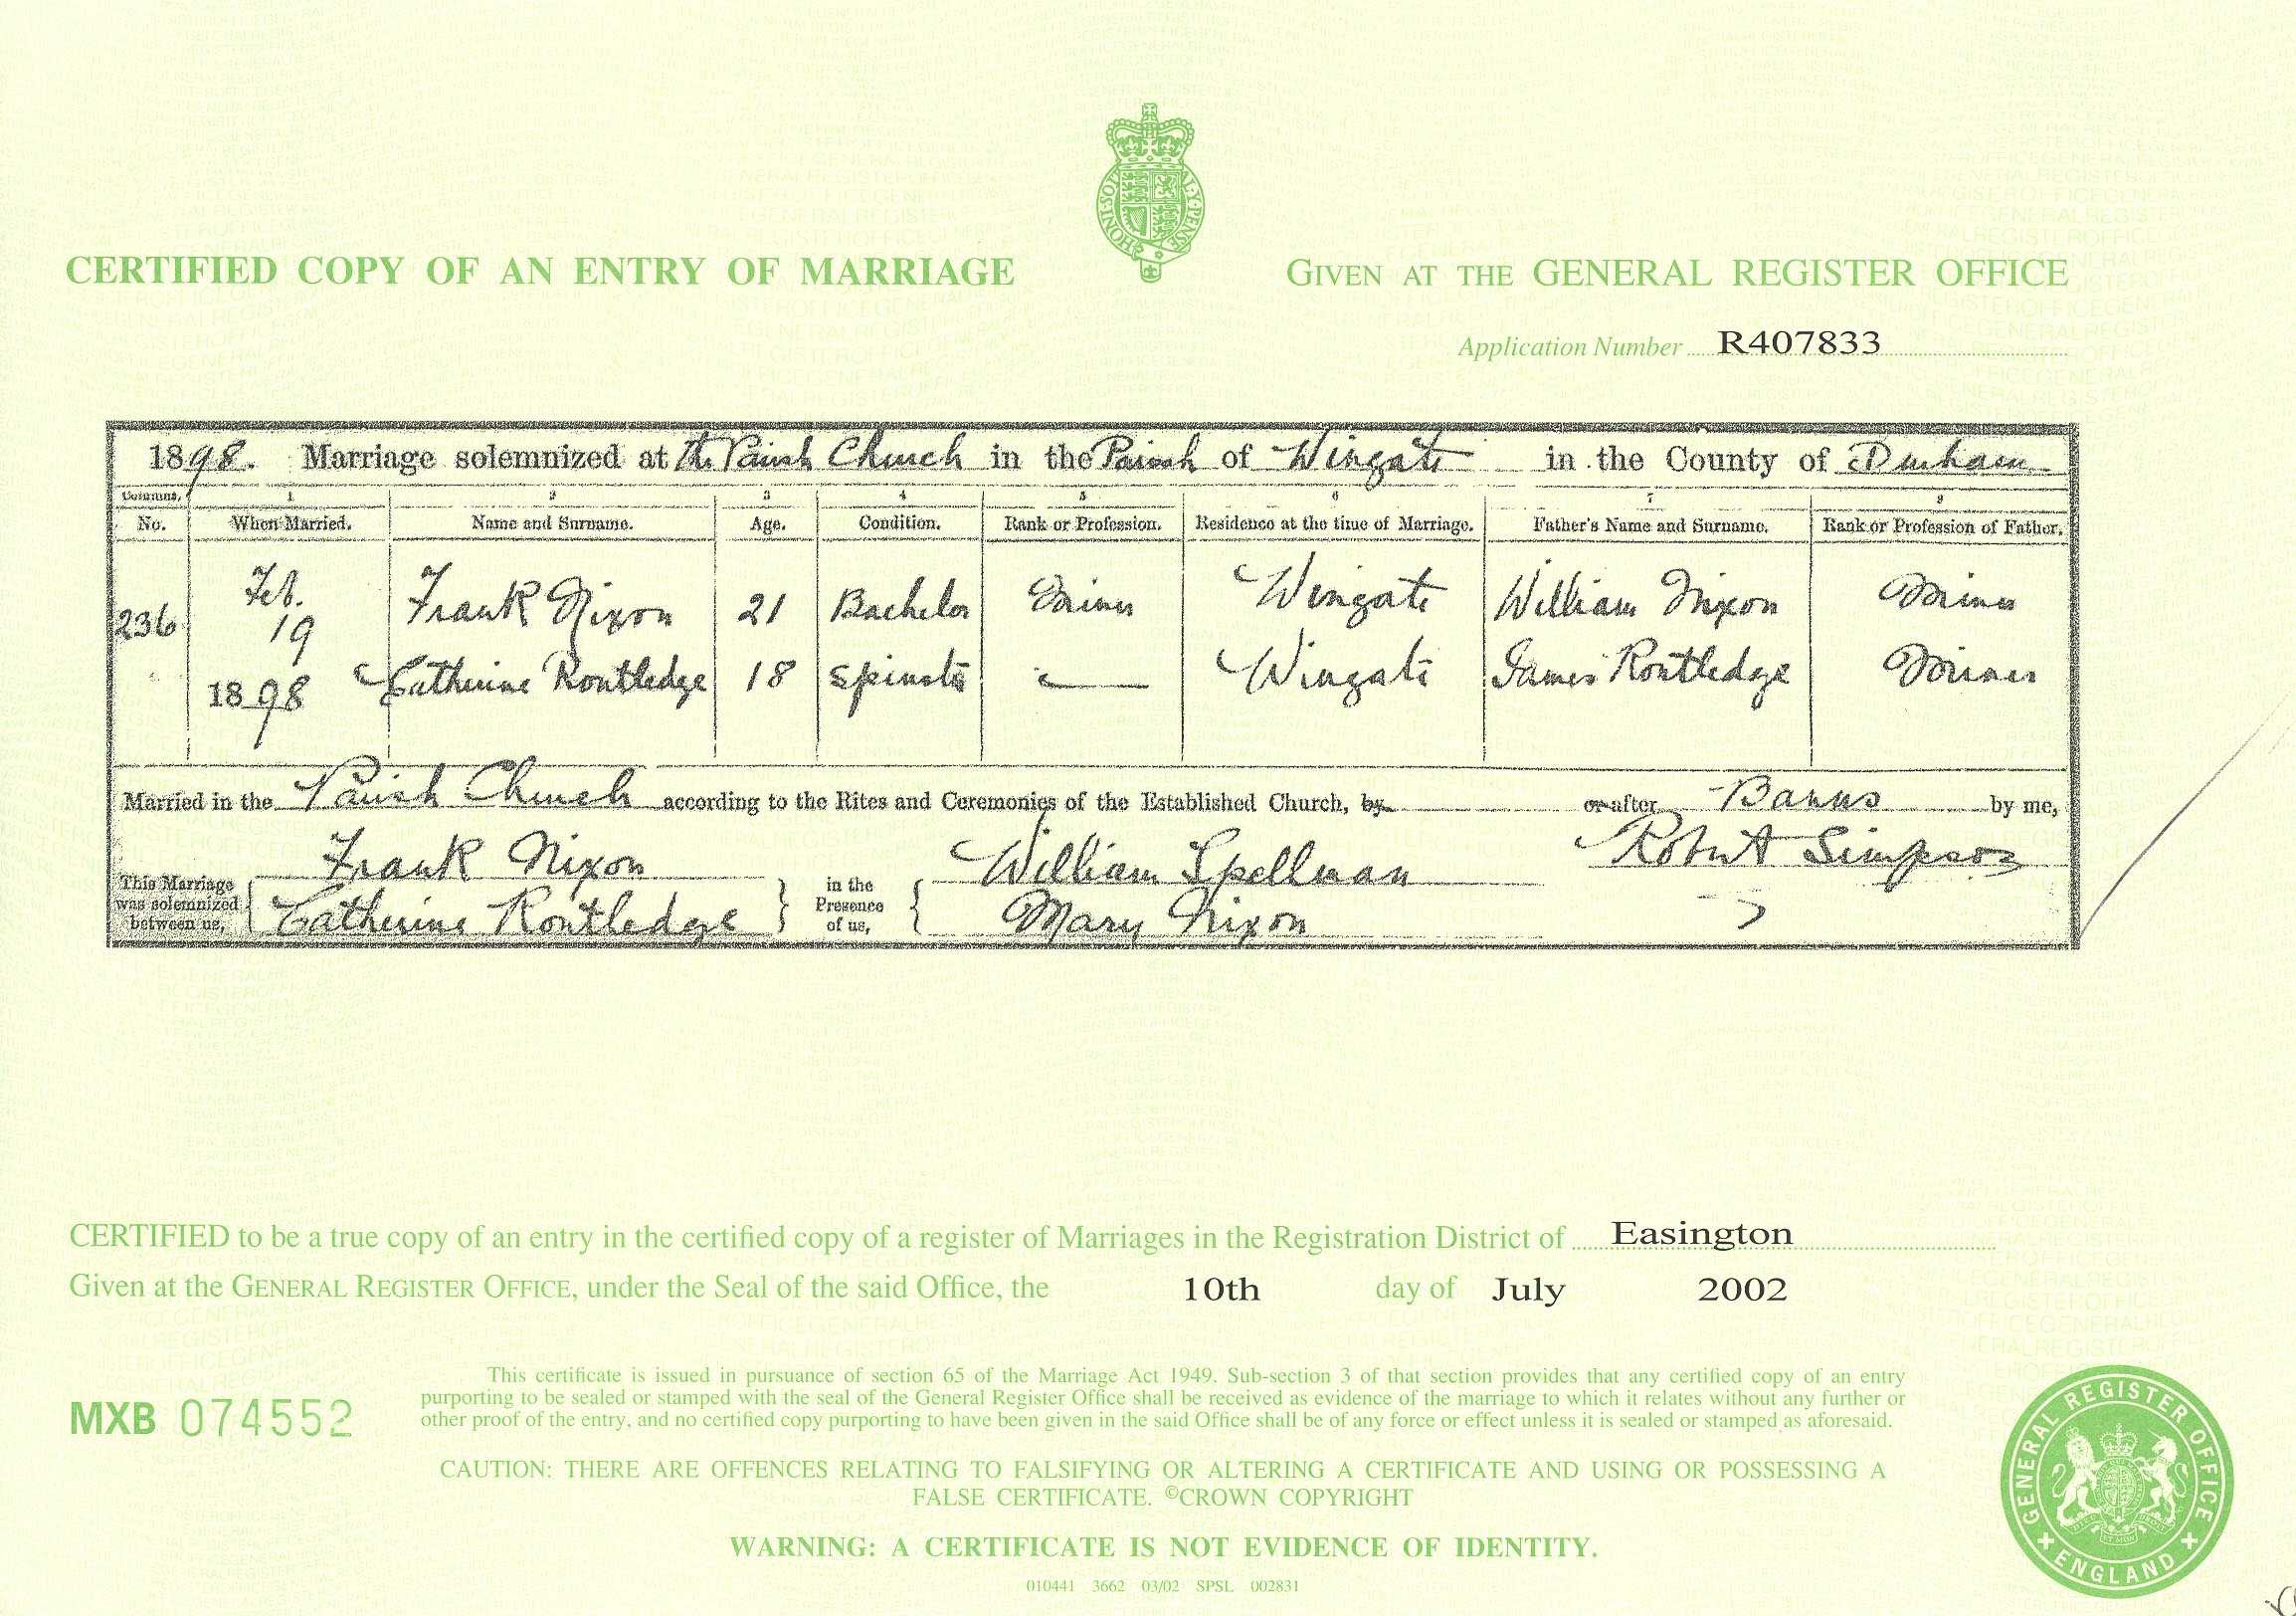 HONI·SOI  AL·Y·PENSE
CERTIFIED COPY OF AN ENTRY OF MARRIAGE
GIVEN AT THE GENERAL REGISTER OFFICE
Application Number R407833
1898. Marriage solemnized at the Parish Church in the Parish of Wingate in the County of Durham
Columns. 1 2 3 4 5 6 7 8
No. When Married. Name and Surname. Age. Condition. Rank or Profession. Residence at the time of Marriage. Father's Name and Surname. Rank or Profession of Father.
236 Feb. 19 1898 Frank Nixon 21 Bachelor Miner Wingate William Nixon Miner
Catherine Routledge 18 Spinster — Wingate James Routledge Miner
Married in the Parish Church according to the Rites and Ceremonies of the Established Church, by or after Banns by me,
Robert Simpson
This Marriage was solemnized between us, Frank Nixon Catherine Routledge in the Presence of us, William Spellman Mary Nixon
CERTIFIED to be a true copy of an entry in the certified copy of a register of Marriages in the Registration District of Easington
Given at the GENERAL REGISTER OFFICE, under the Seal of the said Office, the 10th day of July 2002
MXB 074552
This certificate is issued in pursuance of section 65 of the Marriage Act 1949. Sub-section 3 of that section provides that any certified copy of an entry
purporting to be sealed or stamped with the seal of the General Register Office shall be received as evidence of the marriage to which it relates without any further or
other proof of the entry, and no certified copy purporting to have been given in the said Office shall be of any force or effect unless it is sealed or stamped as aforesaid.
CAUTION: THERE ARE OFFENCES RELATING TO FALSIFYING OR ALTERING A CERTIFICATE AND USING OR POSSESSING A
FALSE CERTIFICATE. ©CROWN COPYRIGHT
WARNING: A CERTIFICATE IS NOT EVIDENCE OF IDENTITY.
010441 3662 03/02 SPSL 002831
GENERAL REGISTER OFFICE
ENGLAND